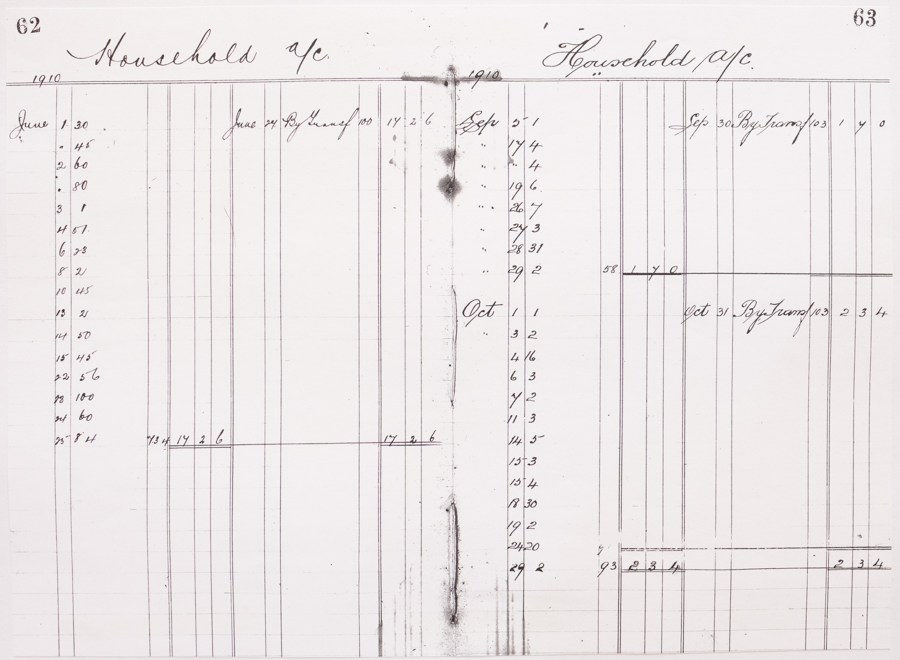 62
Household a/c.
1910
June 1 30 June 24 By Transf 100 17 2 6
" 45
2 60
" 80
3 1
4 51
6 23
8 2
10 45
13 2
14 50
15 45
22 56
23 100
24 60
25 84 734 17 2 6 17 2 6
63
Household a/c.
1910
Sep 5 1 Sep 30 By Transf 103 1 7 0
" 17 4
" " 4
" 19 6
" 26 7
" 27 3
" 28 31
" 29 2 58 1 7 0
Oct 1 1 Oct 31 By Transf 103 2 3 4
" 3 2
4 16
6 3
7 2
11 3
14 5
15 3
15 4
18 30
19 2
24 20
29 2 93 2 3 4 2 3 4